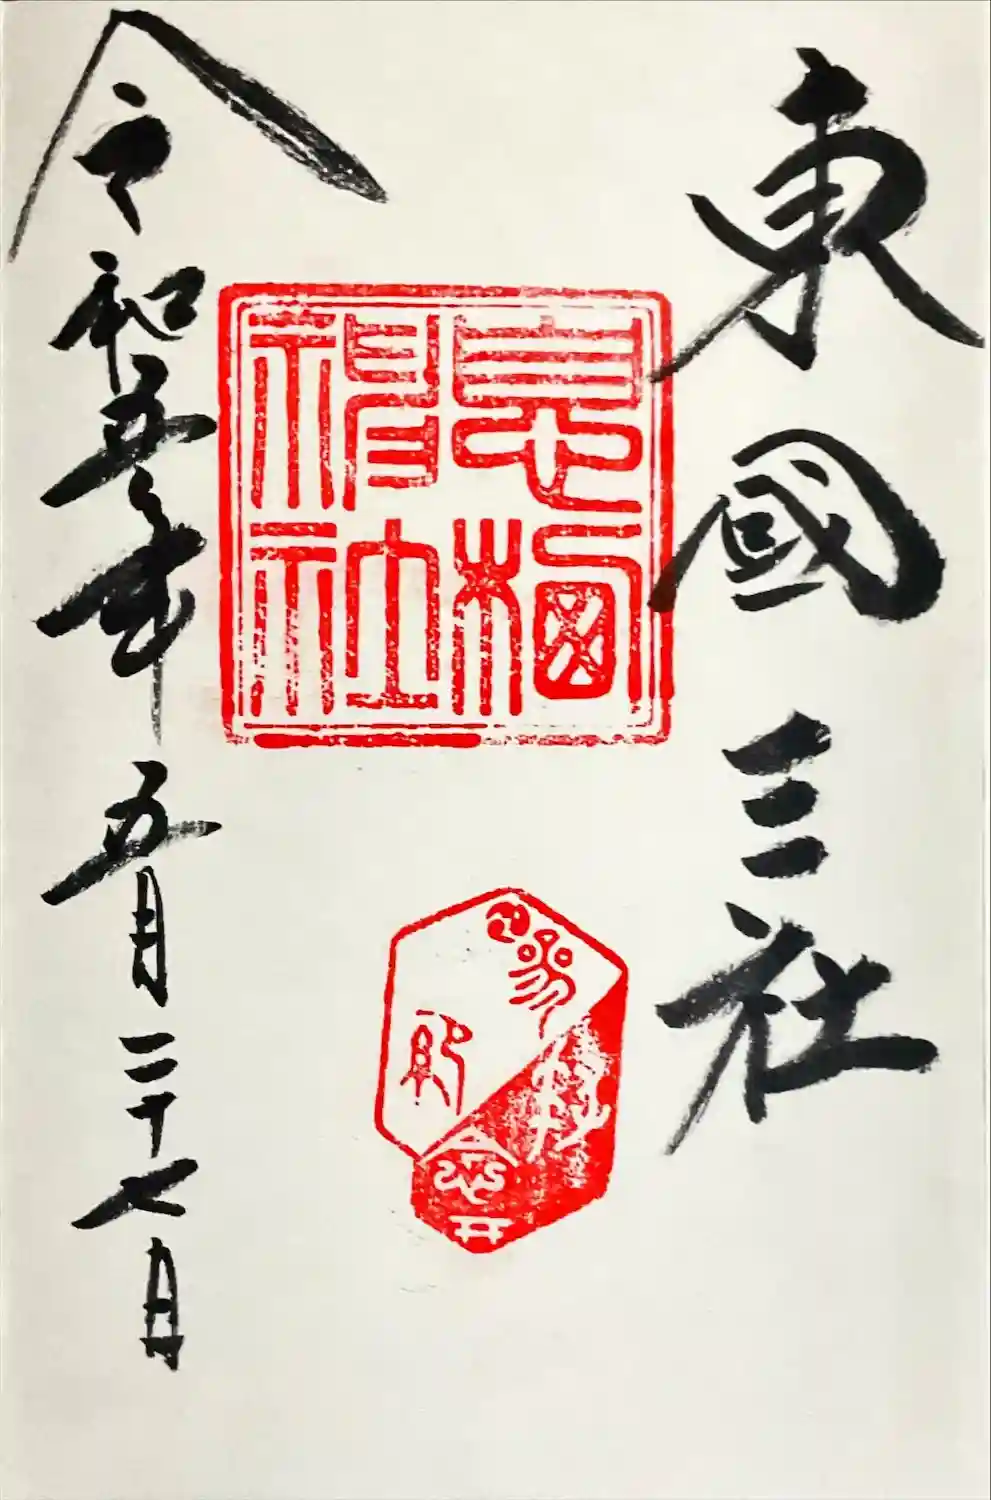 東國三社
息栖神社
令和五年五月二十七日